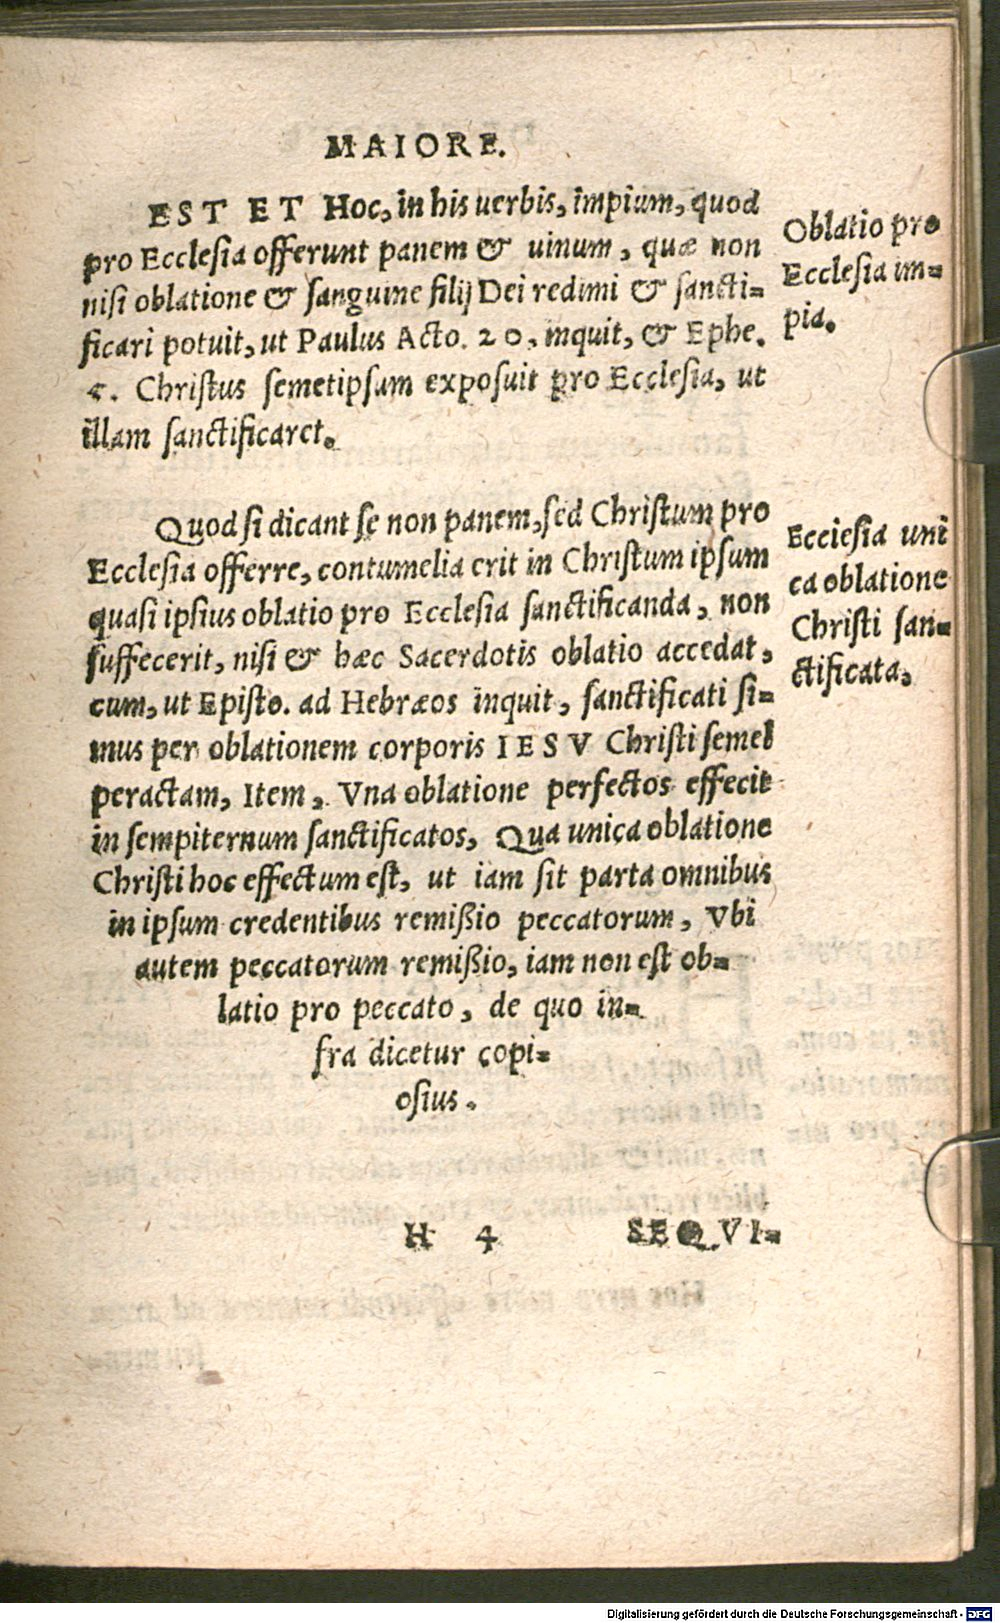 MAIORE.
EST ET Hoc, in his uerbis, impium, quod
pro Ecclesia offerunt panem & uinum, quæ non
nisi oblatione & sanguine filij Dei redimi & sancti=
ficari potuit, ut Paulus Acto. 20, inquit, & Ephe.
5. Christus semetipsum exposuit pro Ecclesia, ut
illam sanctificaret.
Oblatio pro
Ecclesia im=
pia.
Quod si dicant se non panem, sed Christum pro
Ecclesia offerre, contumelia erit in Christum ipsum
quasi ipsius oblatio pro Ecclesia sanctificanda, non
suffecerit, nisi & hæc Sacerdotis oblatio accedat,
cum, ut Episto. ad Hebræos inquit, sanctificati si=
mus per oblationem corporis IESV Christi semel
peractam, Item, Vna oblatione perfectos effecit
in sempiternum sanctificatos, Qua unica oblatione
Christi hoc effectum est, ut iam sit parta omnibus
in ipsum credentibus remißio peccatorum, Vbi
autem peccatorum remißio, iam non est ob=
latio pro peccato, de quo in=
fra dicetur copi=
osius.
Ecclesia uni
ca oblatione
Christi san=
ctificata,
H 4 SEQVI=
Digitalisierung gefördert durch die Deutsche Forschungsgemeinschaft - DFG